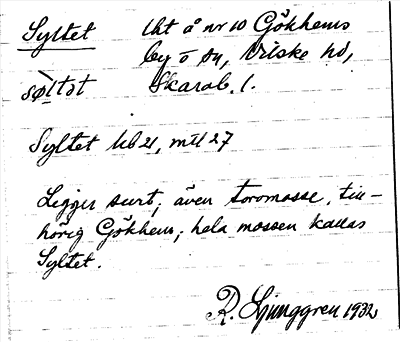 Syltet lht å nr 10 Gökhems
by o sn, Vilske hd,
søltət Skarab. l.
Syltet Ub 21, mtl 27
Ligger surt; även toromosse, till-
hörig Gökhem; hela mossen kallas
Syltet.
R. Ljunggren 1932